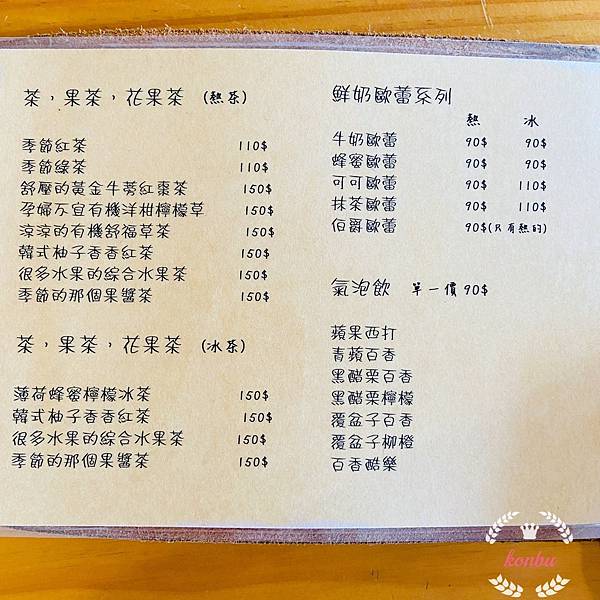 茶，果茶，花果茶 (熱茶)
季節紅茶 110$
季節綠茶 110$
舒壓的黃金牛蒡紅棗茶 150$
孕婦不宜有機洋柑檸檬草 150$
涼涼的有機舒福草茶 150$
韓式柚子香香紅茶 150$
很多水果的綜合水果茶 150$
季節的那個果醬茶 150$
茶，果茶，花果茶 (冰茶)
薄荷蜂蜜檸檬冰茶 150$
韓式柚子香香紅茶 150$
很多水果的綜合水果茶 150$
季節的那個果醬茶 150$
鮮奶歐蕾系列
熱 冰
牛奶歐蕾 90$ 90$
蜂蜜歐蕾 90$ 90$
可可歐蕾 90$ 110$
抹茶歐蕾 90$ 110$
伯爵歐蕾 90$(只有熱的)
氣泡飲 單一價90$
蘋果西打
青蘋百香
黑醋栗百香
黑醋栗檸檬
覆盆子百香
覆盆子柳橙
百香酷樂
konbu